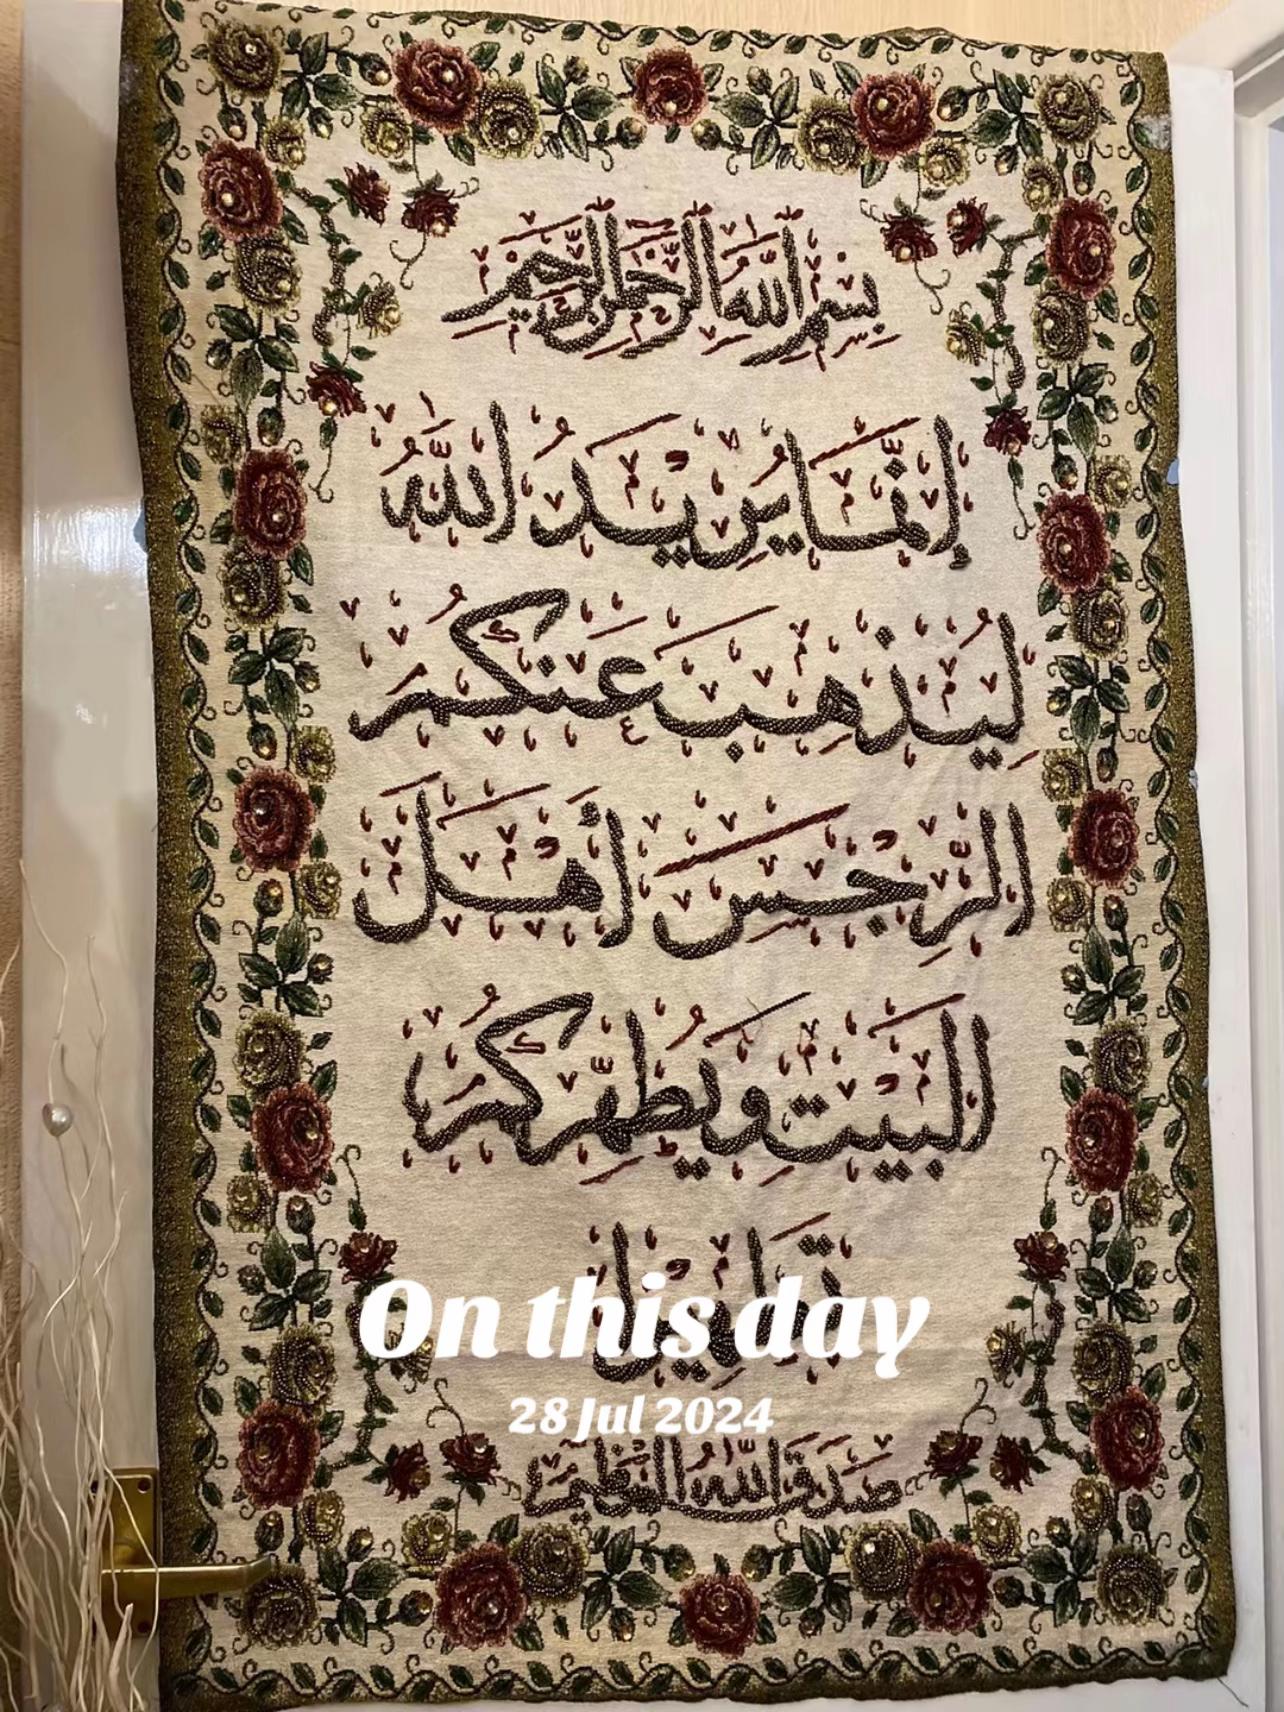 بِسْمِ اللَّهِ الرَّحْمَٰنِ الرَّحِيمِ
إِنَّمَا يُرِيدُ اللَّهُ
لِيُذْهِبَ عَنكُمُ
الرِّجْسَ أَهْلَ
الْبَيْتِ وَيُطَهِّرَكُمْ
تَطْهِيرًا
On this day
28 Jul 2024
صَدَقَ اللَّهُ الْعَظِيمُ